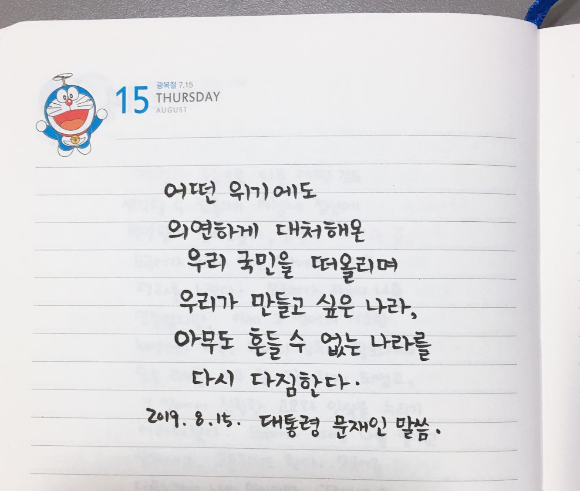 광복절 7.15
15 THURSDAY
AUGUST
어떤 위기에도
의연하게 대처해온
우리 국민을 떠올리며
우리가 만들고 싶은 나라,
아무도 흔들 수 없는 나라를
다시 다짐한다.
2019. 8. 15. 대통령 문재인 말씀.